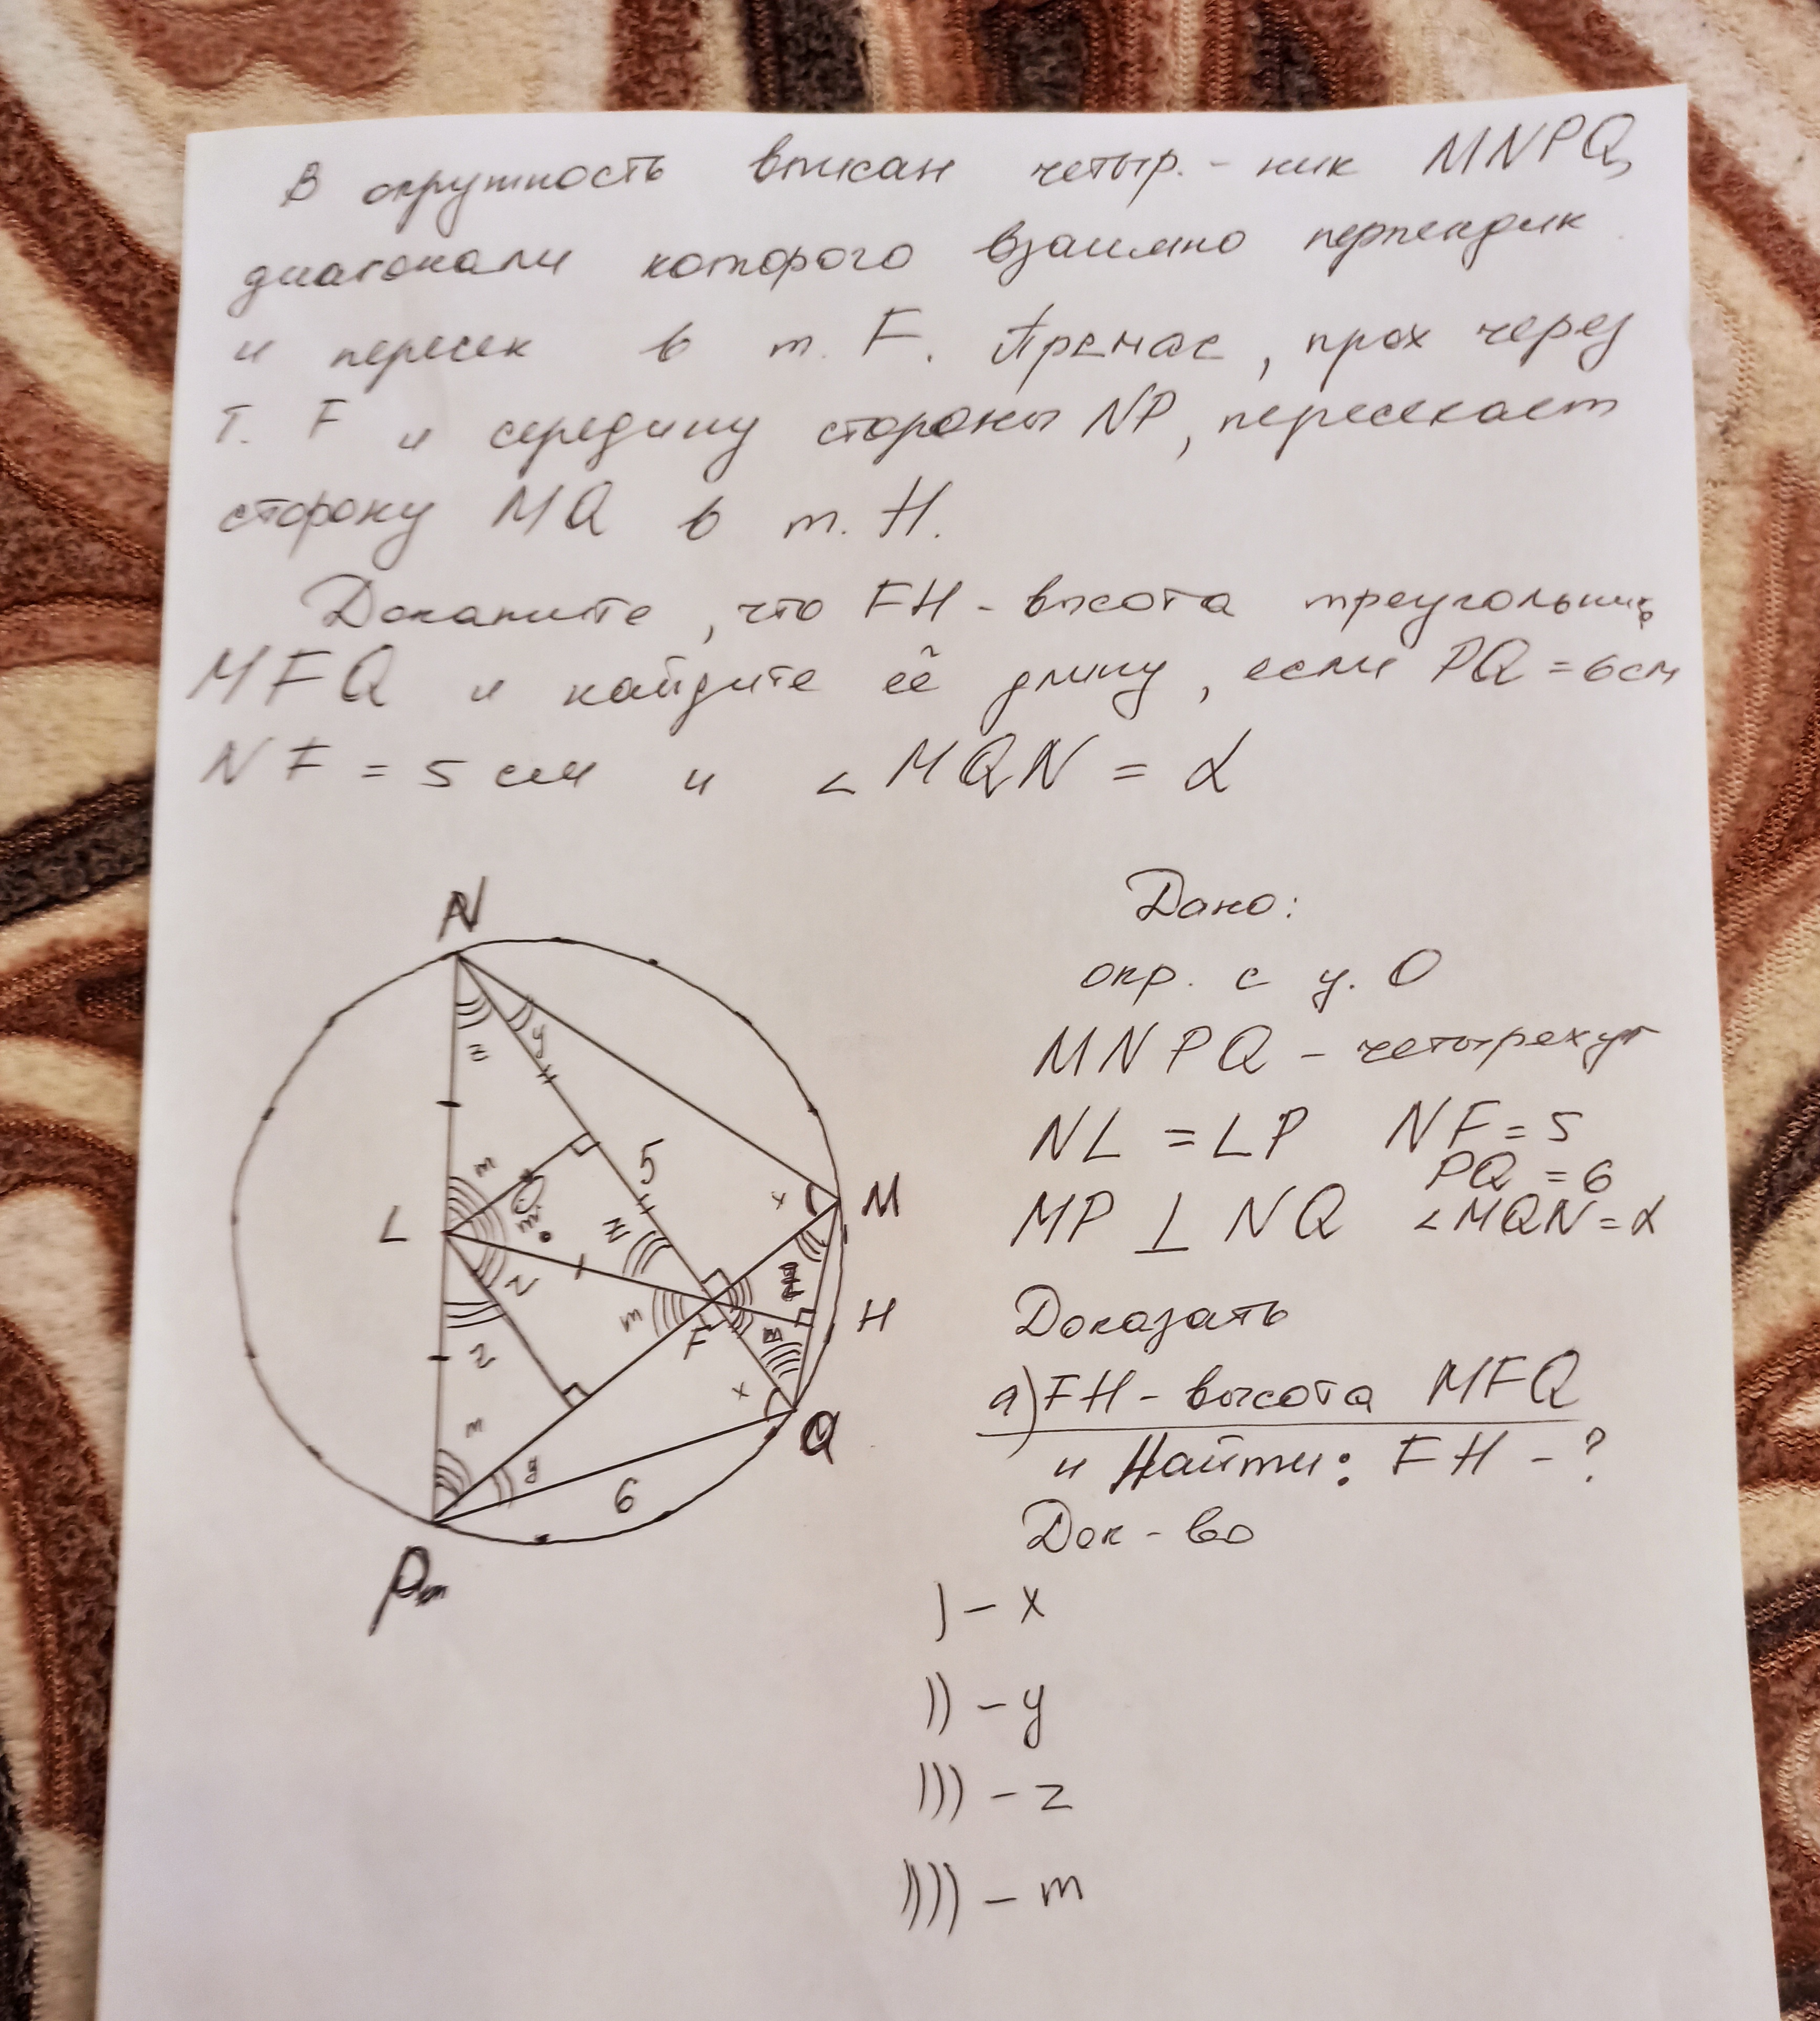 В окружность вписан четыр.-ник MNPQ,
диагонали которого взаимно перпендик
и пересек в т. F. Прямая, прох через
т. F и середину стороны NP, пересекает
сторону MQ в т. H.
Докажите, что FH - высота треугольник
MFQ и найдите её длину, если PQ = 6 см
NF = 5 см и ∠MQN = α
Дано:
окр. с ц. O
MNPQ - четырехуг
NL = LP NF = 5
PQ = 6
MP ⊥ NQ ∠MQN = α
Доказать
а) FH - высота MFQ
и Найти: FH - ?
Док-во
) - x
)) - y
))) - z
)))) - m
N
z
y
5
m
O
m
L
z
z
m
F
x
M
m
H
x
Q
z
m
y
6
P